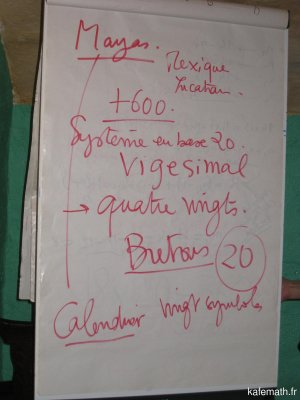 Mayas.
Mexique
Yucatan.
+600.
Système en base 20.
Vigesimal
→ quatre vingts.
Bretons
20
Calendrier vingt symboles
kafemath.fr